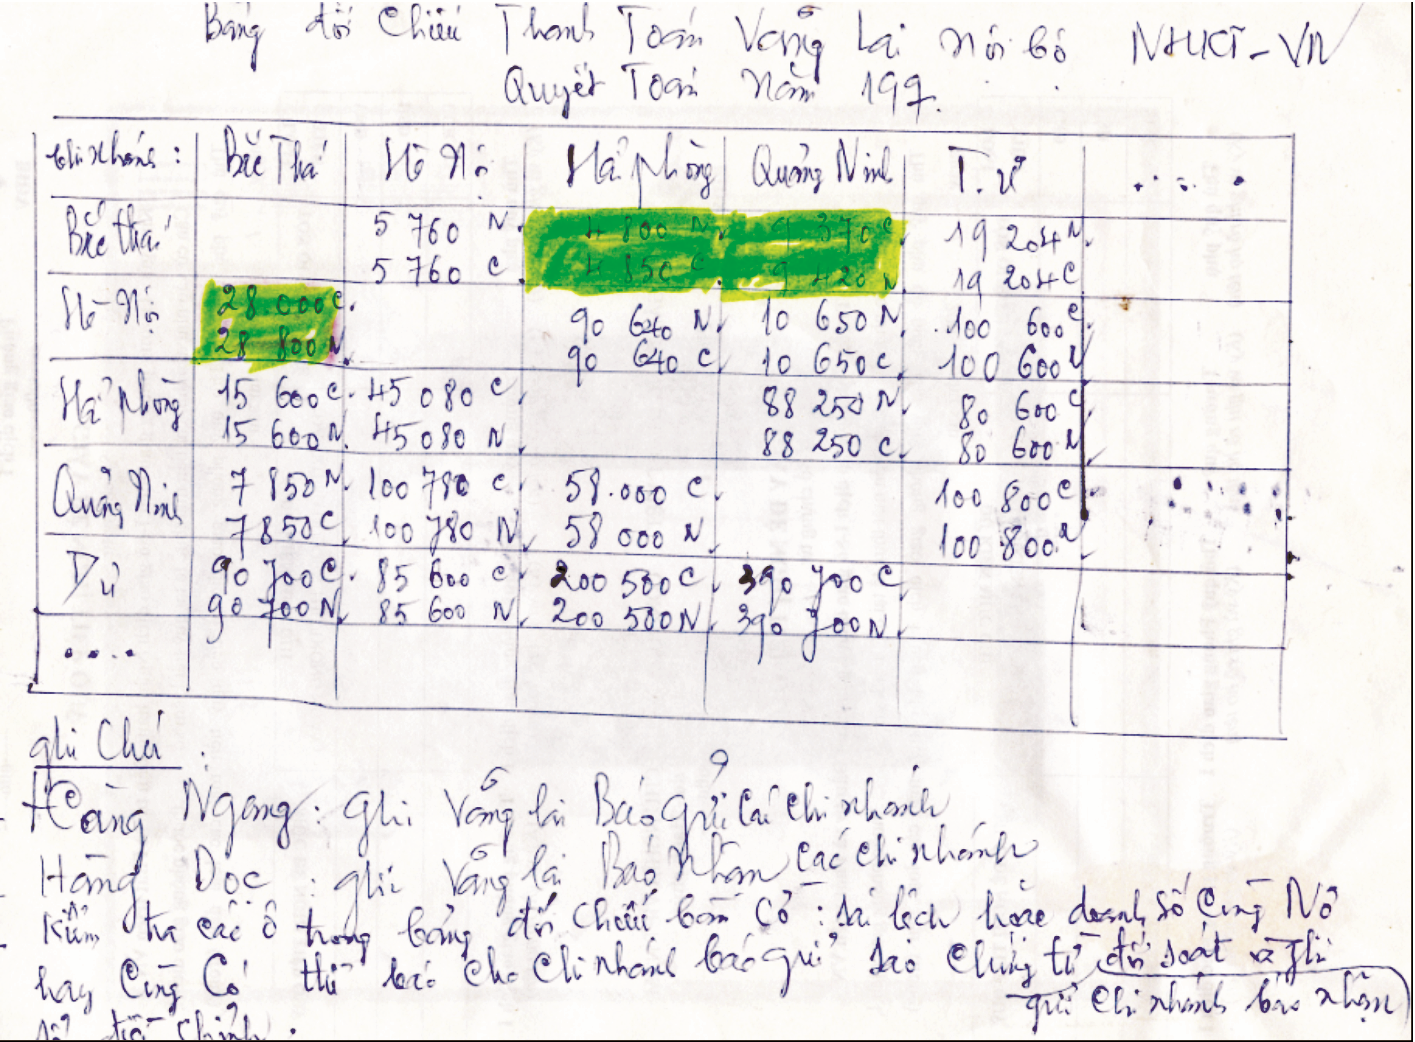 Bảng đối chiếu Thanh Toán Vãng lai nội bộ NHCT-VN
Quyết Toán năm 199.
Chi nhánh: Bắc Thái Hà Nội Hải phòng Quảng Ninh T.Ư .....
Bắc thái 5 760 N 4 800 N 9 370 C 19 204 N
5 760 C 4 850 C 9 420 N 19 204 C
Hà Nội 28 000 C 90 640 N 10 650 N 100 600 C
28 800 N 90 640 C 10 650 C 100 600 N
Hải Phòng 15 600 C 45 080 C 88 250 N 80 600 C
15 600 N 45 080 N 88 250 C 80 600 N
Quảng Ninh 7 850 N 100 780 C 58.000 C 100 800 C
7 850 C 100 780 N 58 000 N 100 800 N
90 700 C 85 600 C 200 500 C 390 700 C
90 700 N 85 600 N 200 500 N 390 700 N
....
ghi Chú:
Hàng Ngang: ghi Vãng lai Báo gửi các chi nhánh
Hàng Dọc: ghi Vãng lai Báo Nhận các chi nhánh
Kiểm tra các ô trong bảng đối chiếu bên Có: sai lệch hoặc doanh số cùng Nợ
hay Cùng Có thì báo cho chi nhánh báo gửi sao chứng từ đối soát và ghi
gửi chi nhánh báo nhận
để điều chỉnh.